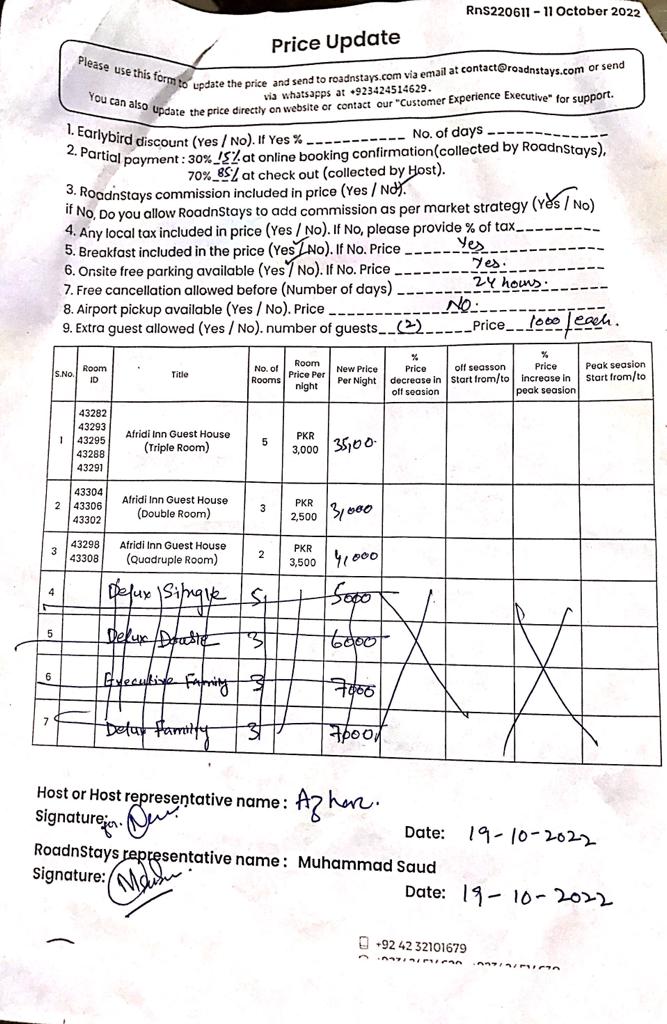 RnS220611 - 11 October 2022
Price Update
Please use this form to update the price and send to roadnstays.com via email at contact@roadnstays.com or send
via whatsapps at +923424514629.
You can also update the price directly on website or contact our "Customer Experience Executive" for support.
1. Earlybird discount (Yes / No). If Yes % ___________ No. of days ___________
2. Partial payment : 30% 15% at online booking confirmation(collected by RoadnStays),
70% 85% at check out (collected by Host).
3. RoadnStays commission included in price (Yes / No).
if No, Do you allow RoadnStays to add commission as per market strategy (Yes / No)
4. Any local tax included in price (Yes / No). If No, please provide % of tax_________
5. Breakfast included in the price (Yes / No). If No. Price ________ Yes ________
6. Onsite free parking available (Yes / No). If No. Price ________ Yes. ________
7. Free cancellation allowed before (Number of days) ________ 24 hours. ________
8. Airport pickup available (Yes / No). Price ________ No. ________
9. Extra guest allowed (Yes / No). number of guests__(2)_____Price_ 1000/each.
S.No. Room ID Title No. of Rooms Room Price Per night New Price Per Night % Price decrease in off seasion off seasson Start from/to % Price increase in peak seasion Peak seasion Start from/to
1 43282 43293 43295 43288 43291 Afridi Inn Guest House (Triple Room) 5 PKR 3,000 35,00
2 43304 43306 43302 Afridi Inn Guest House (Double Room) 3 PKR 2,500 3,000
3 43298 43308 Afridi Inn Guest House (Quadruple Room) 2 PKR 3,500 4,000
4 Delux Single 5 5000
5 Delux Double 3 6000
6 Executive Family 3 7000
7 Delux Family 3 7000
Host or Host representative name : Azhar.
Signature: for.
Date: 19-10-2022
RoadnStays representative name : Muhammad Saud
Signature:
Date: 19-10-2022
+92 42 32101679